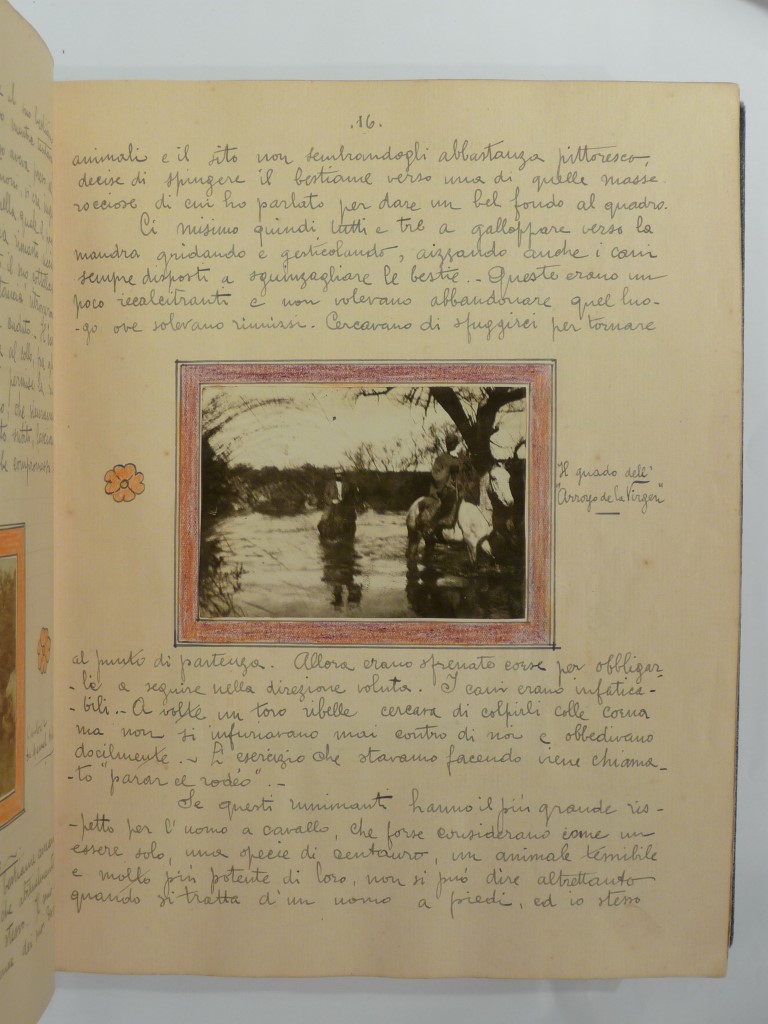 .16.
animali e il sito non sembrandogli abbastanza pittoresco,
decise di spingere il bestiame verso una di quelle masse
rocciose di cui ho parlato per dare un bel fondo al quadro.
Ci misimo quindi tutti e tre a galloppare verso la
mandra gridando e gesticolando, aizzando anche i cani
sempre disposti a sguinzagliare le bestie. - Queste erano un
poco recalcitranti e non volevano abbandonare quel luo-
-go ove solevano riunirsi. Cercavano di sfuggirci per tornare
Il guado dell'
"Arroyo de la Virgen"
al punto di partenza. Allora erano sfrenate corse per obbligar-
-le a seguire nella direzione voluta. I cani erano infatica-
-bili. - A volte un toro ribelle cercava di colpirli colle corna
ma non si infuriavano mai contro di noi e obbedivano
docilmente. - L'esercizio che stavamo facendo viene chiama-
-to "parar el rodeo". -
Se questi ruminanti hanno il più grande ris-
-petto per l'uomo a cavallo, che forse considerano come un
essere solo, una specie di centauro, un animale terribile
e molto più potente di loro, non si può dire altrettanto
quando si tratta d'un uomo a piedi, ed io stesso